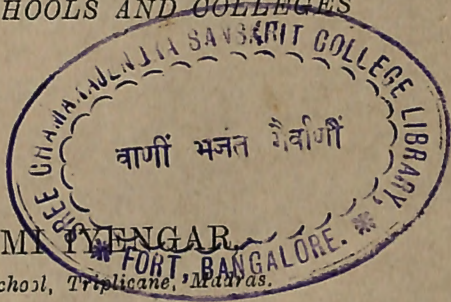 SCHOOLS AND COLLEGES
SREE CHAMARAJENDRA SANSKRIT COLLEGE LIBRARY,
वाणीं भजत गैर्वाणीं
* FORT, BANGALORE. *
MI IYENGAR,
chool, Triplicane, Madras.